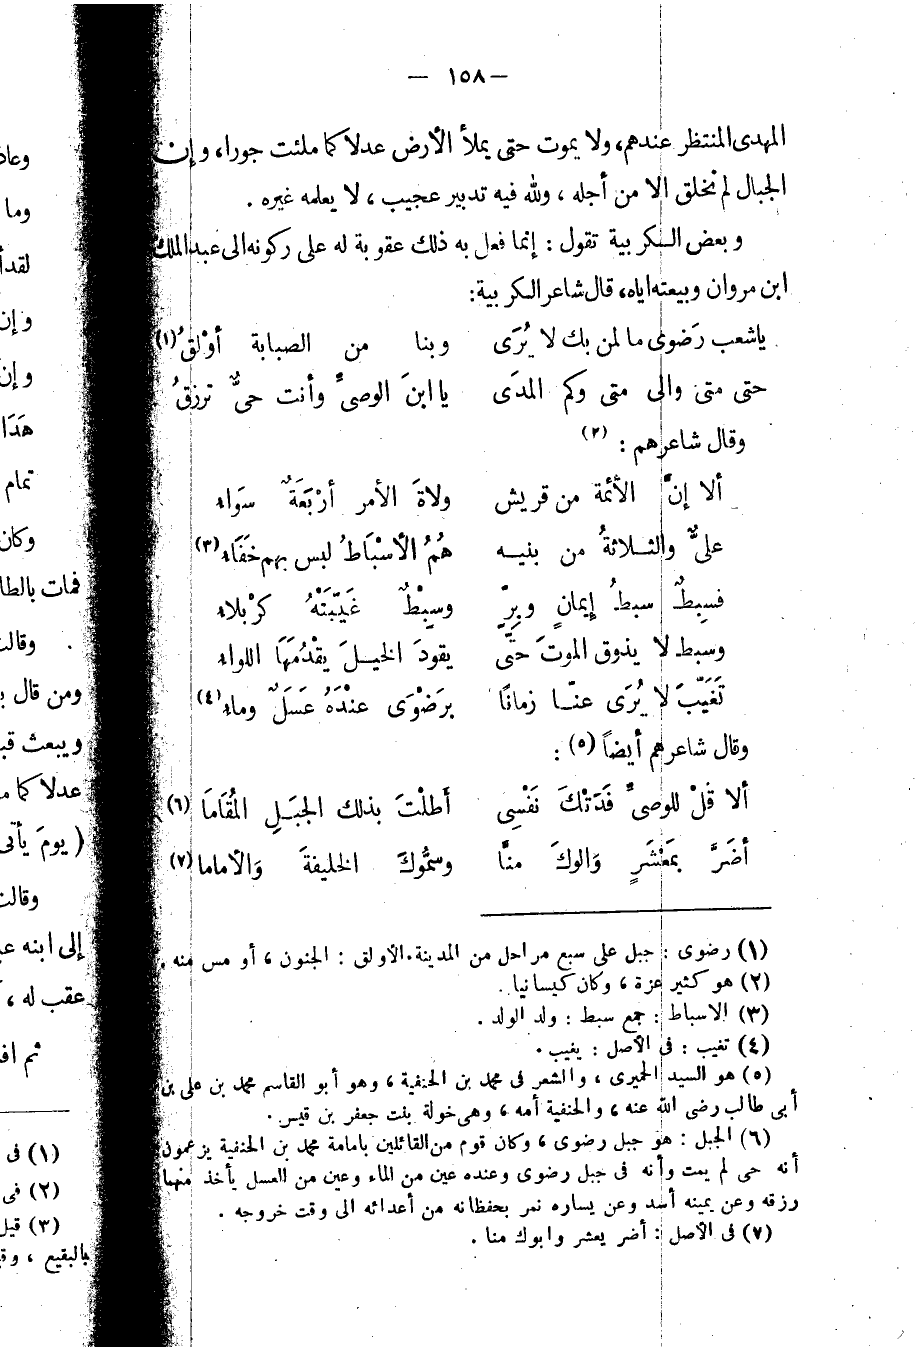 — ١٥٨ —
المهدى المنتظر عندهم، ولا يموت حتى يملأ الأرض عدلا كما ملئت جورا، وإن
الجبال لم تخلق الا من أجله ، ولله فيه تدبير عجيب ، لا يعلمه غيره .
وبعض الكربية تقول : إنما فعل به ذلك عقوبة له على ركونه الى عبد الملك
ابن مروان وبيعته اياه، قال شاعر الكربية:
ياشعب رَضوى ما لمن بك لا يُرَى وبنا من الصبابة أوْلقُ (١)
حتى متى والى متى وكم المدَى يا ابنَ الوصىِّ وأنت حىٌّ ترزقُ
وقال شاعرهم (٢) :
ألا إنَّ الأئمة من قريش ولاةَ الأمر أرْبَعَةٌ سوَاء
علىٌّ والثلاثةُ من بنيه هُمُ الأسْبَاطُ ليس بهم خَفَاء (٣)
فسِبطٌ سبطُ إيمانٍ وبِرٍّ وسِبْطٌ غَيَّبَتْهُ كرْبلاء
وسبط لا يذوق الموتَ حتَّى يقودَ الخيلَ يقْدُمَهَا اللواء
تَغَيَّبَ لا يُرَى عنّا زمانًا برَضْوَى عنْدَهُ عَسَلٌ وماء (٤)
وقال شاعرهم أيضاً (٥) :
ألا قُلْ للوصىِّ فَدَتْكَ نَفْسِى أطلْتَ بذلك الجبَلِ المُقَامَا (٦)
أضَرَّ بمَعْشَرٍ وَالوكَ منَّا وسمُّوكَ الخليفةَ وَالأماما (٧)
(١) رضوى : جبل على سبع مراحل من المدينة. الأولق : الجنون ، أو مس منه .
(٢) هو كثير عزة ، وكان كيسانيا .
(٣) الاسباط : جمع سبط : ولد الولد .
(٤) تغيب : فى الأصل : يغيب .
(٥) هو السيد الحميرى ، والشعر فى محمد بن الحنفية ، وهو أبو القاسم محمد بن على بن
أبى طالب رضى الله عنه ، والحنفية أمه ، وهى خولة بنت جعفر بن قيس .
(٦) الجبل : هو جبل رضوى ، وكان قوم من القائلين بامامة محمد بن الحنفية يزعمون
أنه حى لم يمت وأنه فى جبل رضوى وعنده عين من الماء وعين من العسل يأخذ منهما
رزقه وعن يمينه أسد وعن يساره نمر يحفظانه من أعدائه الى وقت خروجه .
(٧) فى الأصل : أضر يعشر وابوك منا .
وما
لقد
وإن
وإن
هَذَا
تمام
وكان
فمات بالطا
. وقالت
ومن قال
ويبعث
عدلا كما
( يومَ يأتى
وقالت
إلى ابنه
عقب له ،
ثم
(١) فى
(٢) فى
(٣) قيل
بالبقيع ،